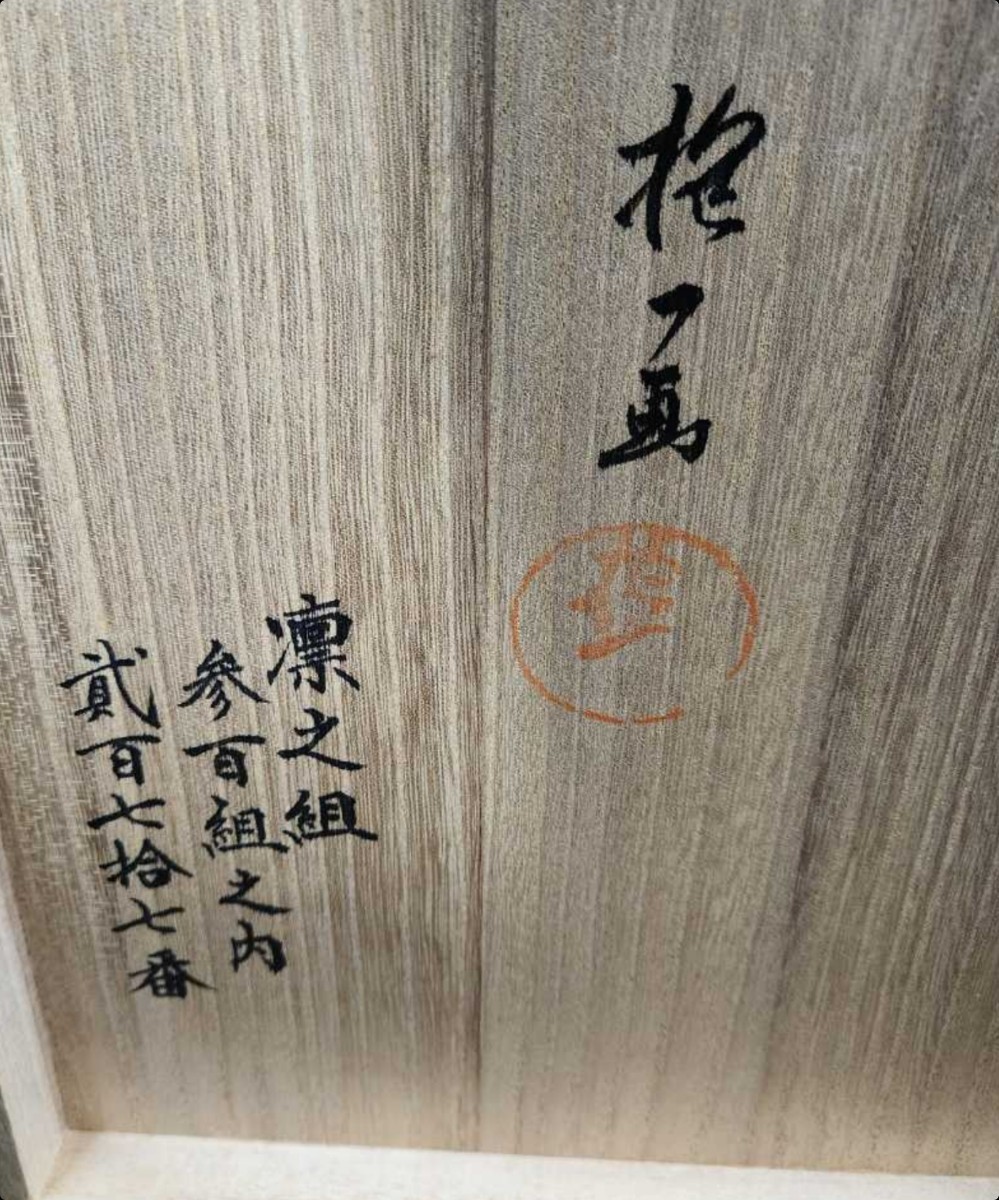 抱一画
凛之組
参百組之内
貳百七拾七番